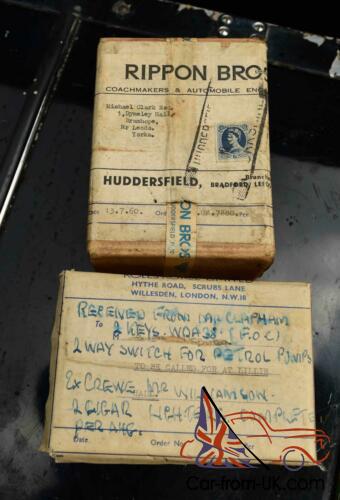 RIPPON BRO
COACHMAKERS & AUTOMOBILE EN
Michael Clark Esq.
1, Dyneley Hall,
Bramhope,
Nr Leeds.
Yorks.
HUDDERSFIELD,
Branch
BRADFORD, LEED
Date 13.7.60. Ord 7880 Per
ON BROS
HYTHE ROAD, SCRUBS LANE
WILLESDEN, LONDON, N.W.10
RECEIVED FROM MR CLAPHAM
To 2 KEYS (F.O.C)
2 WAY SWITCH FOR PETROL PUMPS
TO BE CALLED FOR AT LILLIE
HALL
EX CREWE MR WILLIAMSON.
2 CIGAR LIGHTER COMPLETE
PER AUG.
Date. Order No. Per
Car-from-UK.com